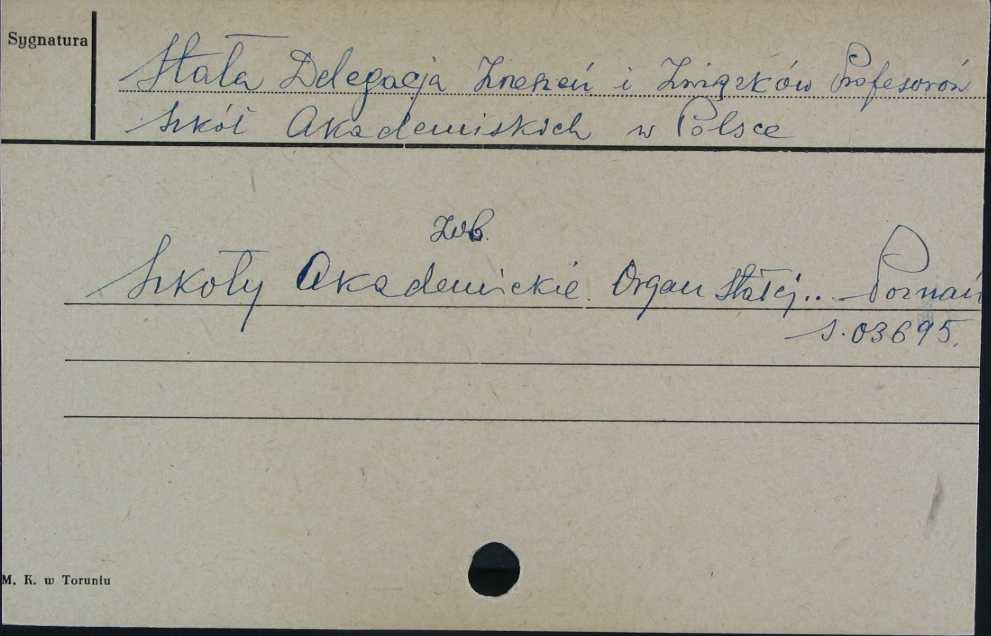 Sygnatura
Stała Delegacja Zrzeszeń i Związków Profesorów
Szkół Akademiskich w Polsce
zob.
Szkoły Akademickie. Organ Stałej.. Poznań
S.03695.
M. K. w Toruniu